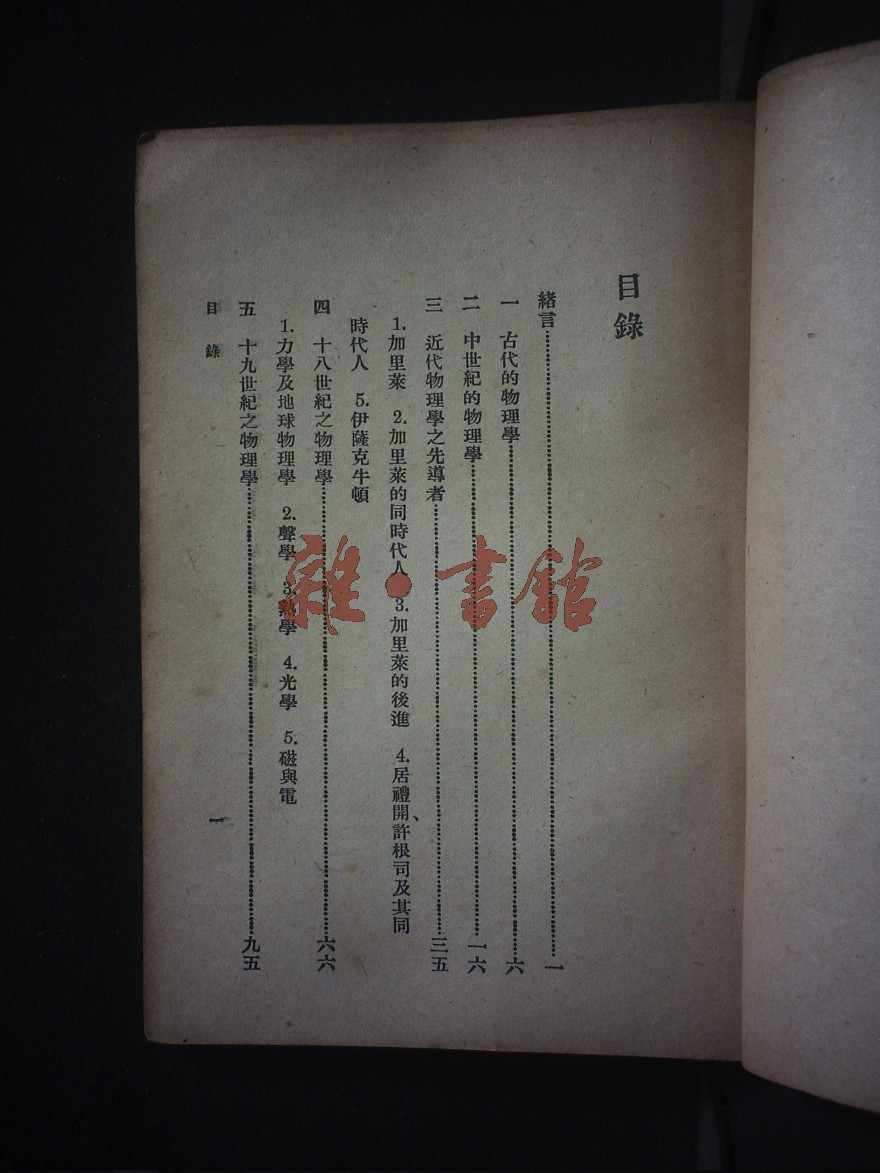 目錄
緒言……………一
一 古代的物理學……………六
二 中世紀的物理學……………一六
三 近代物理學之先導者……………三五
1.加里萊 2.加里萊的同時代人 3.加里萊的後進 4.居禮開、許根司及其同
時代人 5.伊薩克牛頓
四 十八世紀之物理學……………六六
1.力學及地球物理學 2.聲學 3.熱學 4.光學 5.磁與電
五 十九世紀之物理學……………九五
目錄 一
雜·書館